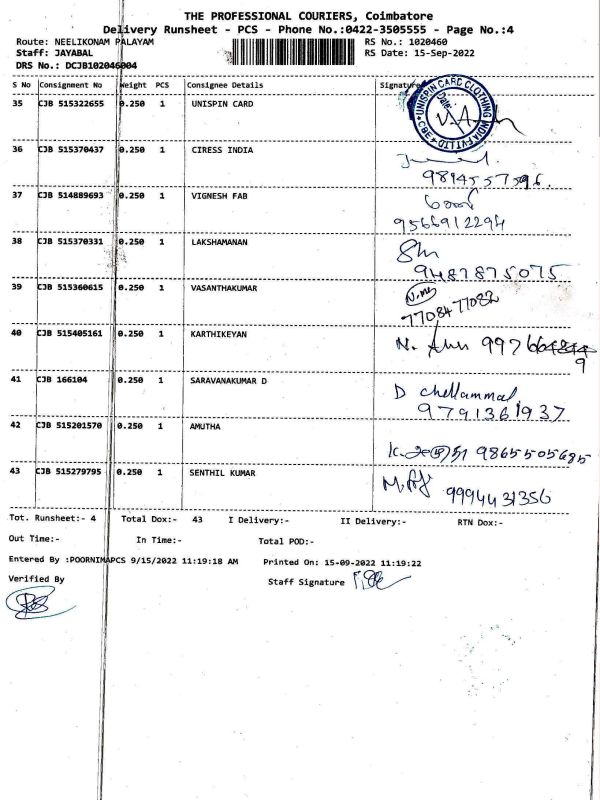 THE PROFESSIONAL COURIERS, Coimbatore
Delivery Runsheet - PCS - Phone No.:0422-3505555 - Page No.:4
Route: NEELIKONAM PALAYAM RS No.: 1020460
Staff: JAYABAL RS Date: 15-Sep-2022
DRS No.: DCJB102046004
S No Consignment No Weight PCS Consignee Details Signature
35 CJB 515322655 0.250 1 UNISPIN CARD
UNISPIN CARD CLOTHING INDIA PVT LTD CBE
36 CJB 515370437 0.250 1 CIRESS INDIA
9894557596.
37 CJB 514889693 0.250 1 VIGNESH FAB
9566912294
38 CJB 515370331 0.250 1 LAKSHAMANAN
9487875075
39 CJB 515360615 0.250 1 VASANTHAKUMAR
7708477082
40 CJB 515405161 0.250 1 KARTHIKEYAN
41 CJB 166104 0.250 1 SARAVANAKUMAR D
D chellammal
9791361937
42 CJB 515201570 0.250 1 AMUTHA
9865505685
43 CJB 515279795 0.250 1 SENTHIL KUMAR
9994431356
Tot. Runsheet:- 4 Total Dox:- 43 I Delivery:- II Delivery:- RTN Dox:-
Out Time:- In Time:- Total POD:-
Entered By :POORNIMAPCS 9/15/2022 11:19:18 AM Printed On: 15-09-2022 11:19:22
Verified By Staff Signature